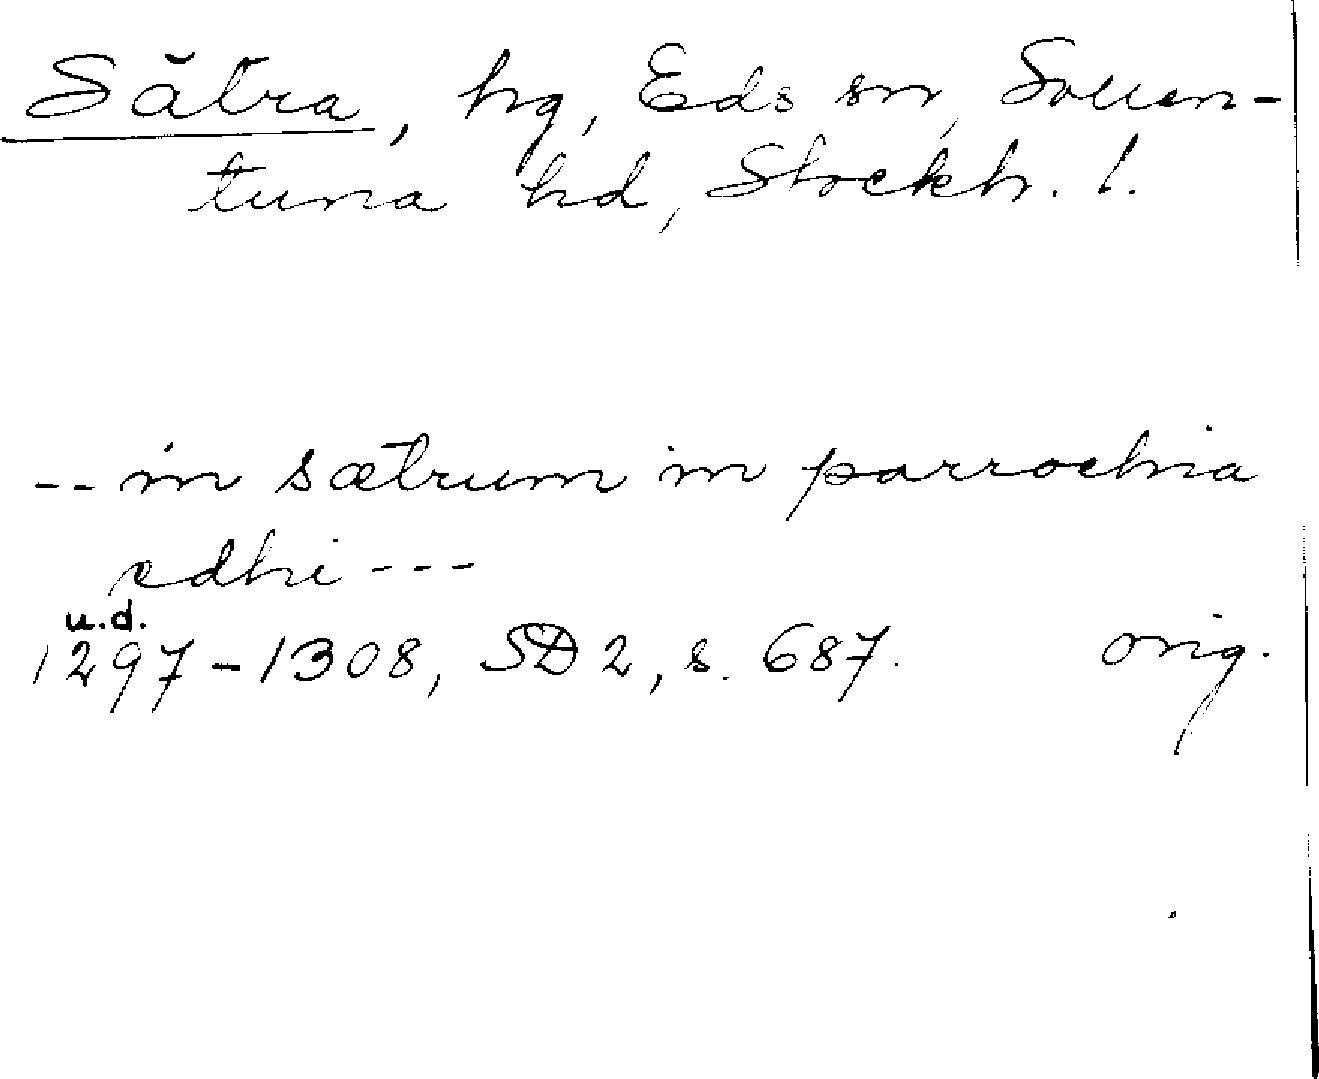 Sätra, hg, Eds sn, Sollen-
tuna hd, Stockh. l.
-- in sætrum in parrochia
edhi ---
u.d.
1297-1308, SD 2, s. 687. orig.